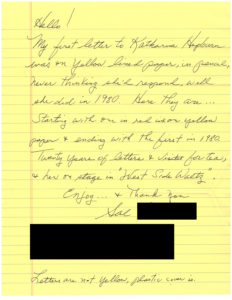 Hello!
My first letter to Katharine Hepburn
was on yellow lined paper, in pencil,
never thinking she'd respond, well
she did in 1980. Here they are...
Starting with one in red ink on yellow
paper & ending with the first in 1980.
Twenty years of letters & visits for tea,
& her on stage in "West Side Waltz".
Enjoy... & Thank you
Letters are not yellow, plastic cover is.